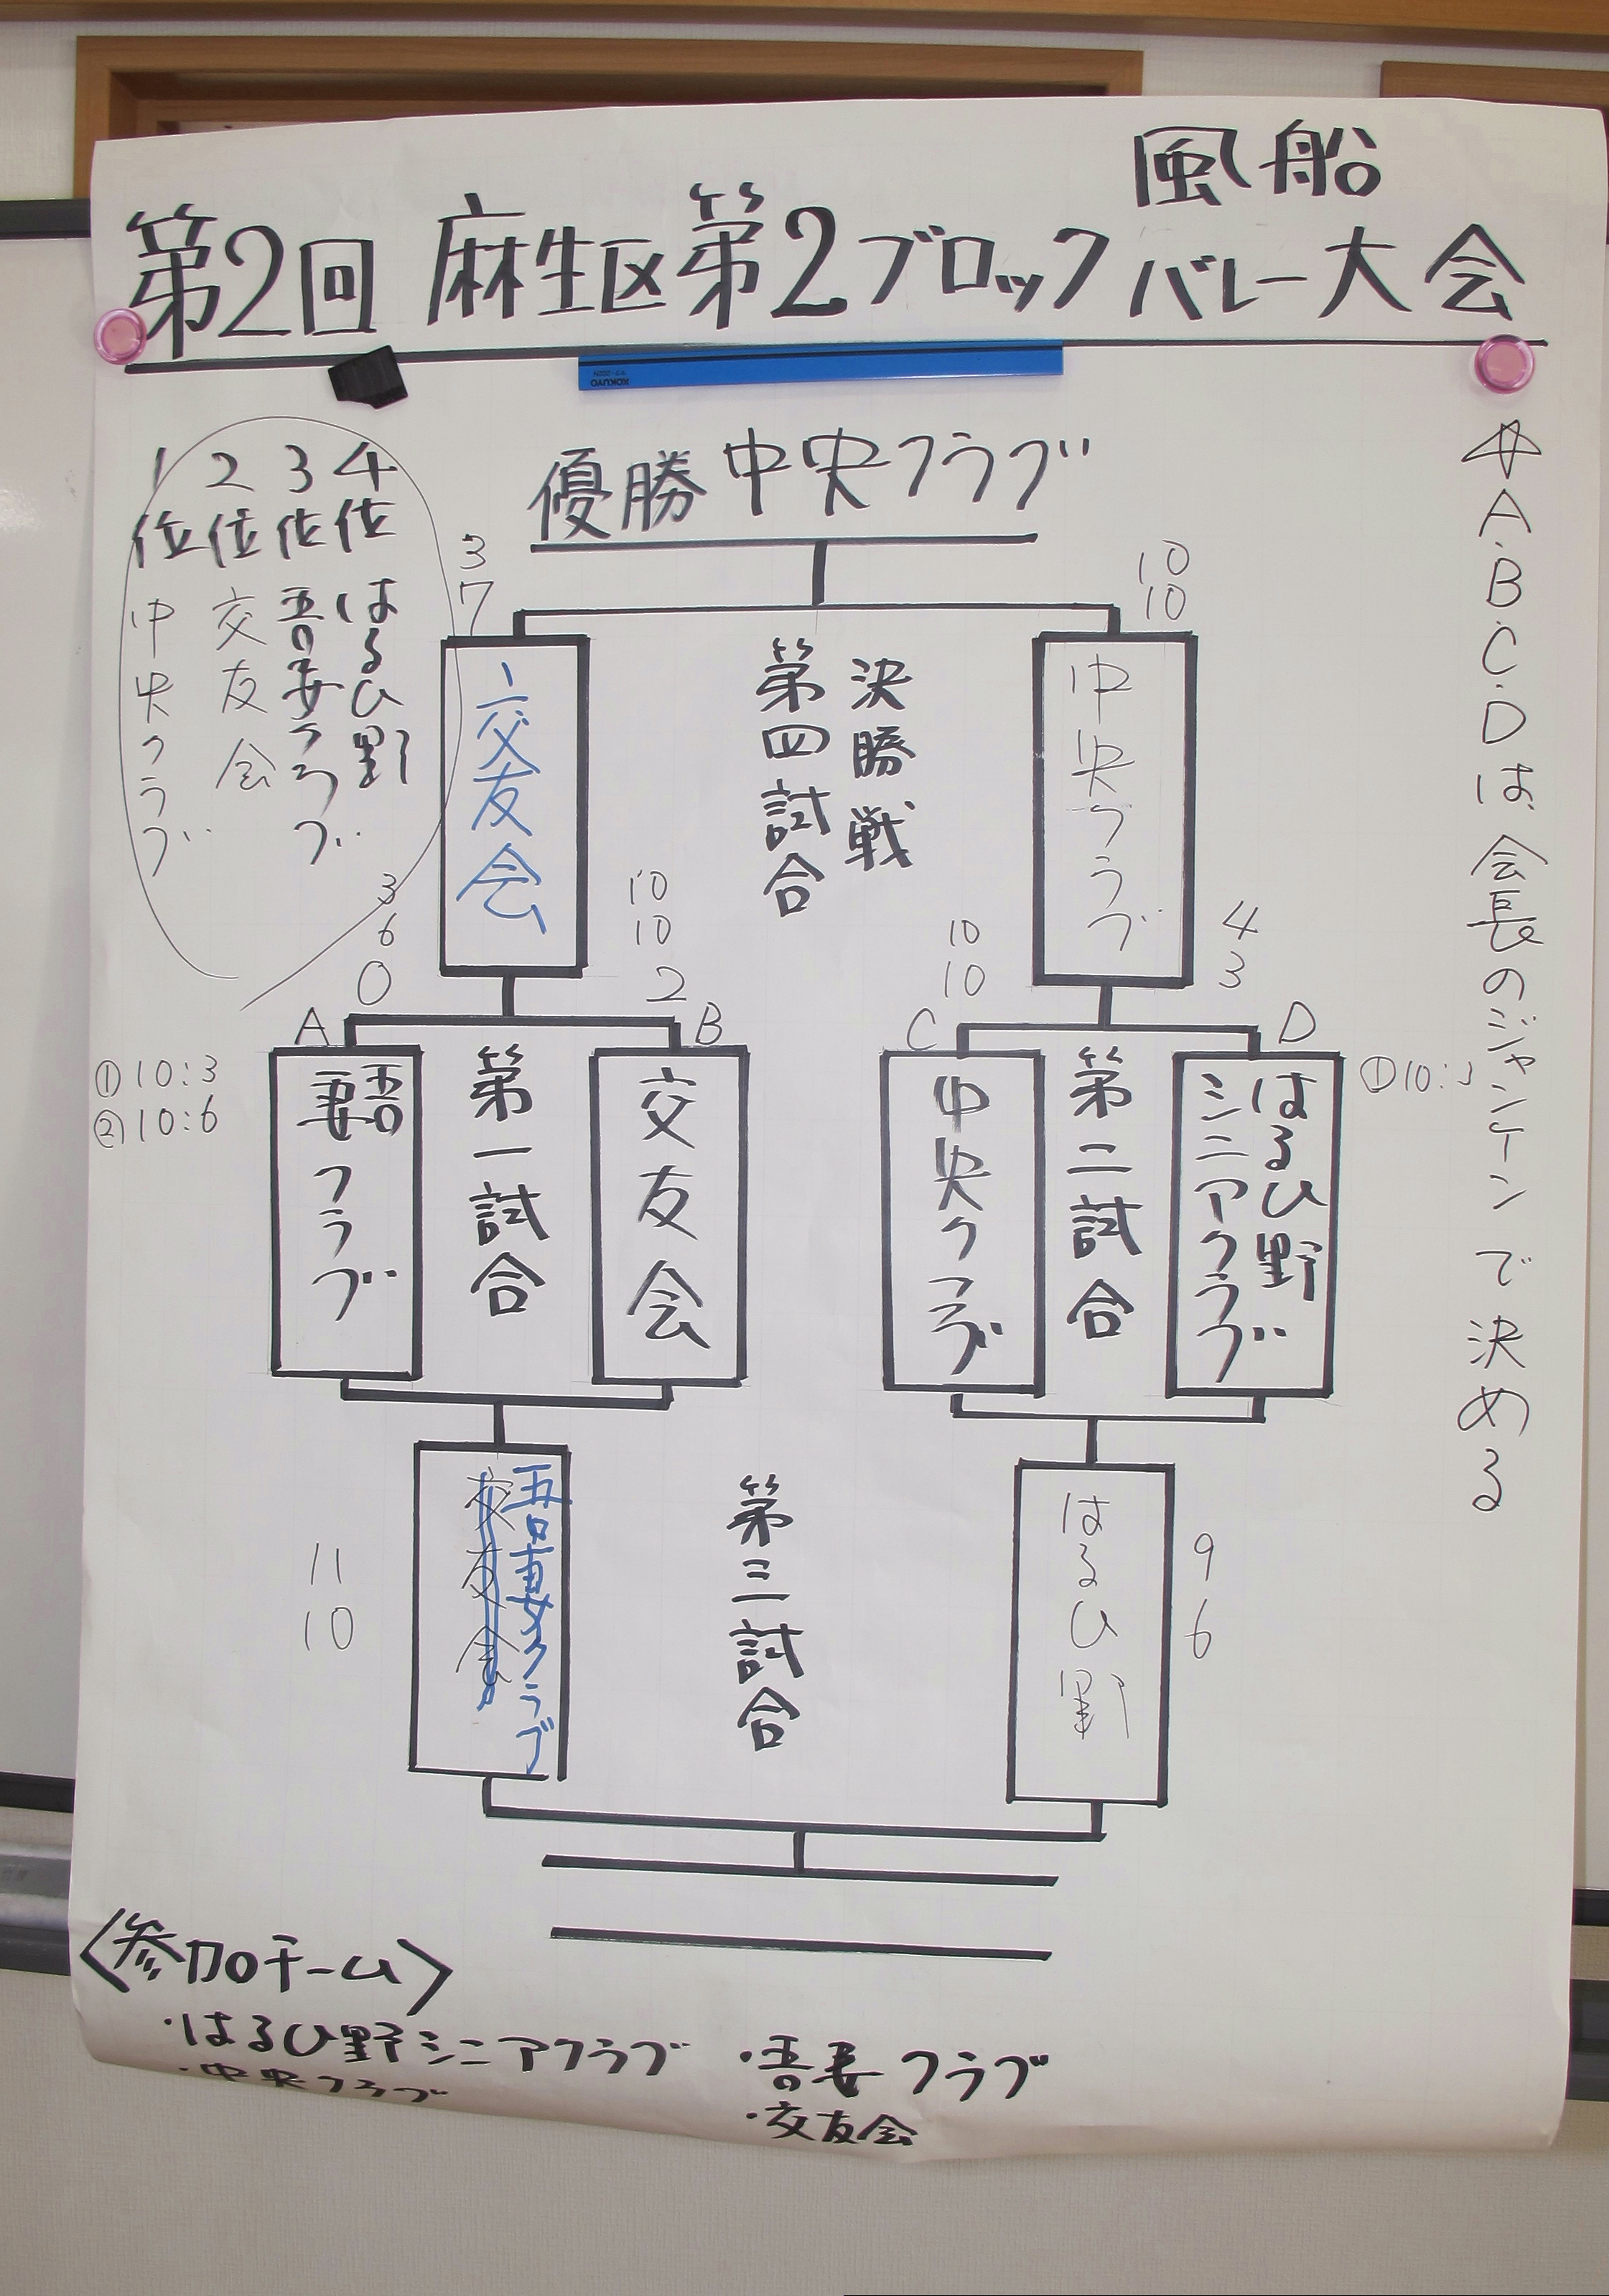 風船
第2回 麻生区第2ブロックバレー大会
KOKUYO
優勝 中央クラブ
1位 中央クラブ
2位 交友会
3位 吾妻クラブ
4位 はるひ野
3
7
10
10
交友会
決勝戦
第四試合
中央クラブ
3
6
0
10
10
2
10
10
4
3
A
B
C
D
①10:3
②10:6
吾妻クラブ
第一試合
交友会
中央クラブ
第二試合
はるひ野
シニアクラブ
①10:
A.B.C.Dは、会長のジャンケンで決める
11
10
吾妻クラブ
交友会
第三試合
はるひ野
9
6
〈参加チーム〉
・はるひ野シニアクラブ
・吾妻クラブ
・中央クラブ
・交友会